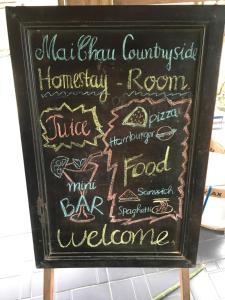 Mai Chau Countryside
Homestay - Room
Juice
pizza
Hamburger
Food
mini
BAR
Sanwich
Spaghetti
welcome